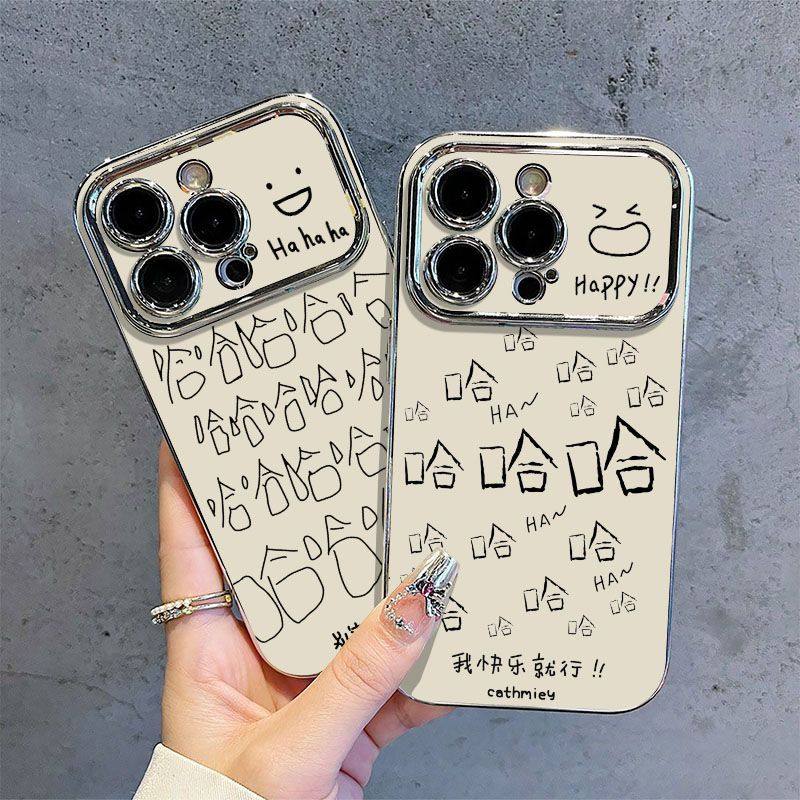 Ha ha ha
哈哈哈哈哈
哈哈哈哈哈
哈哈哈哈
哈哈
HaPPY!!
哈
哈 哈
哈 哈
哈 HA~ 哈
哈 哈 哈
HA~
哈 哈 哈
HA~
哈 哈 哈
哈 哈
我快乐就行!!
cathmiey